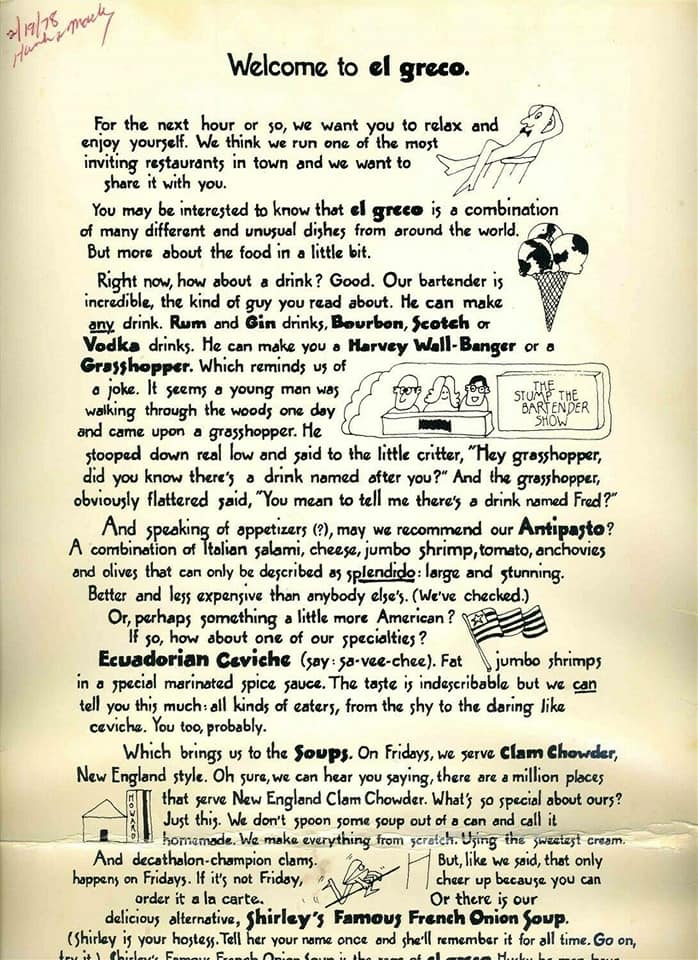 2/19/78
Welcome to el greco.
For the next hour or so, we want you to relax and
enjoy yourself. We think we run one of the most
inviting restaurants in town and we want to
share it with you.
You may be interested to know that el greco is a combination
of many different and unusual dishes from around the world.
But more about the food in a little bit.
Right now, how about a drink? Good. Our bartender is
incredible, the kind of guy you read about. He can make
any drink. Rum and Gin drinks, Bourbon, Scotch or
Vodka drinks. He can make you a Harvey Wall-Banger or a
Grasshopper. Which reminds us of
a joke. It seems a young man was
walking through the woods one day
and came upon a grasshopper. He
THE
STUMP THE
BARTENDER
SHOW
stooped down real low and said to the little critter, "Hey grasshopper,
did you know there's a drink named after you?" And the grasshopper,
obviously flattered said, "You mean to tell me there's a drink named Fred?"
And speaking of appetizers (?), may we recommend our Antipasto?
A combination of Italian salami, cheese, jumbo shrimp, tomato, anchovies
and olives that can only be described as splendido: large and stunning.
Better and less expensive than anybody else's. (We've checked.)
Or, perhaps something a little more American?
If so, how about one of our specialties?
Ecuadorian Ceviche (say: sa-vee-chee). Fat jumbo shrimps
in a special marinated spice sauce. The taste is indescribable but we can
tell you this much: all kinds of eaters, from the shy to the daring like
ceviche. You too, probably.
Which brings us to the Soups. On Fridays, we serve Clam Chowder,
New England style. Oh sure, we can hear you saying, there are a million places
HOWARD
that serve New England Clam Chowder. What's so special about ours?
Just this. We don't spoon some soup out of a can and call it
homemade. We make everything from scratch. Using the sweetest cream.
And decathalon-champion clams. But, like we said, that only
happens on Fridays. If it's not Friday, cheer up because you can
order it a la carte. Or there is our
delicious alternative, Shirley's Famous French Onion Soup.
(Shirley is your hostess. Tell her your name once and she'll remember it for all time. Go on,
try it.) Shirley's Famous French Onion Soup is the rage of el greco